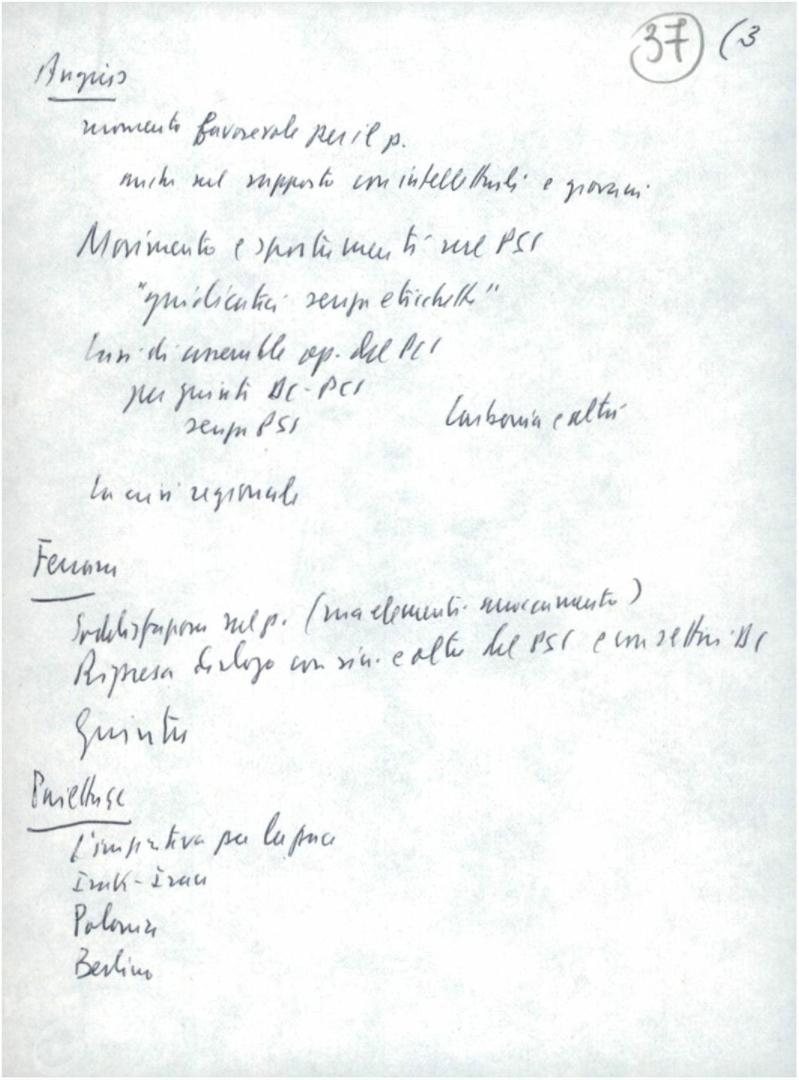 37 (3
Angius
momento favorevole per il p.
anche nel rapporto con intellettuali e giovani
Movimento e spostamenti nel PSI
"giudicateci senza etichette"
Casi di assemblee op. del PCI
per giunte DC-PCI
senza PSI Carbonia e altri
La crisi regionale
Ferrara
Soddisfazione nel p. (ma elementi)
Ripresa dialogo con sin. e altri del PSI e con settori DC
Giunta
Pajetta GC
L'iniziativa per la pace
Irak-Iran
Polonia
Berlino